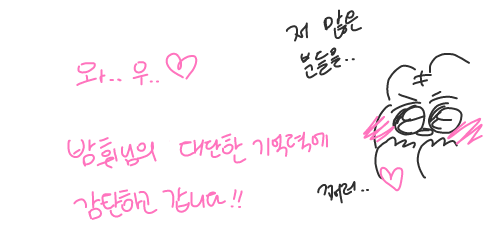 와.. 우.. ♡
저 많은
분들을..
밤휘님의 대단한 기억력에
감탄하고 갑니다!!
쩌러..